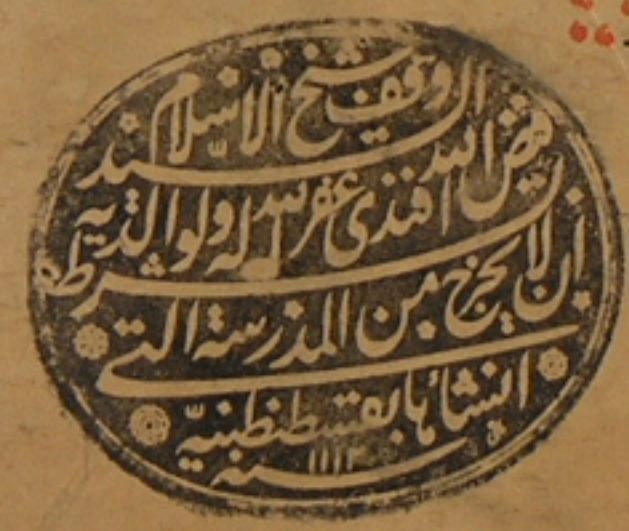 وقف شيخ الاسلام
السيد فيض الله
افندى غفر الله له ولوالديه
بشرط ان لا يخرج من المدرسة التى
انشأها بقسطنطينية
سنة ١١١٢